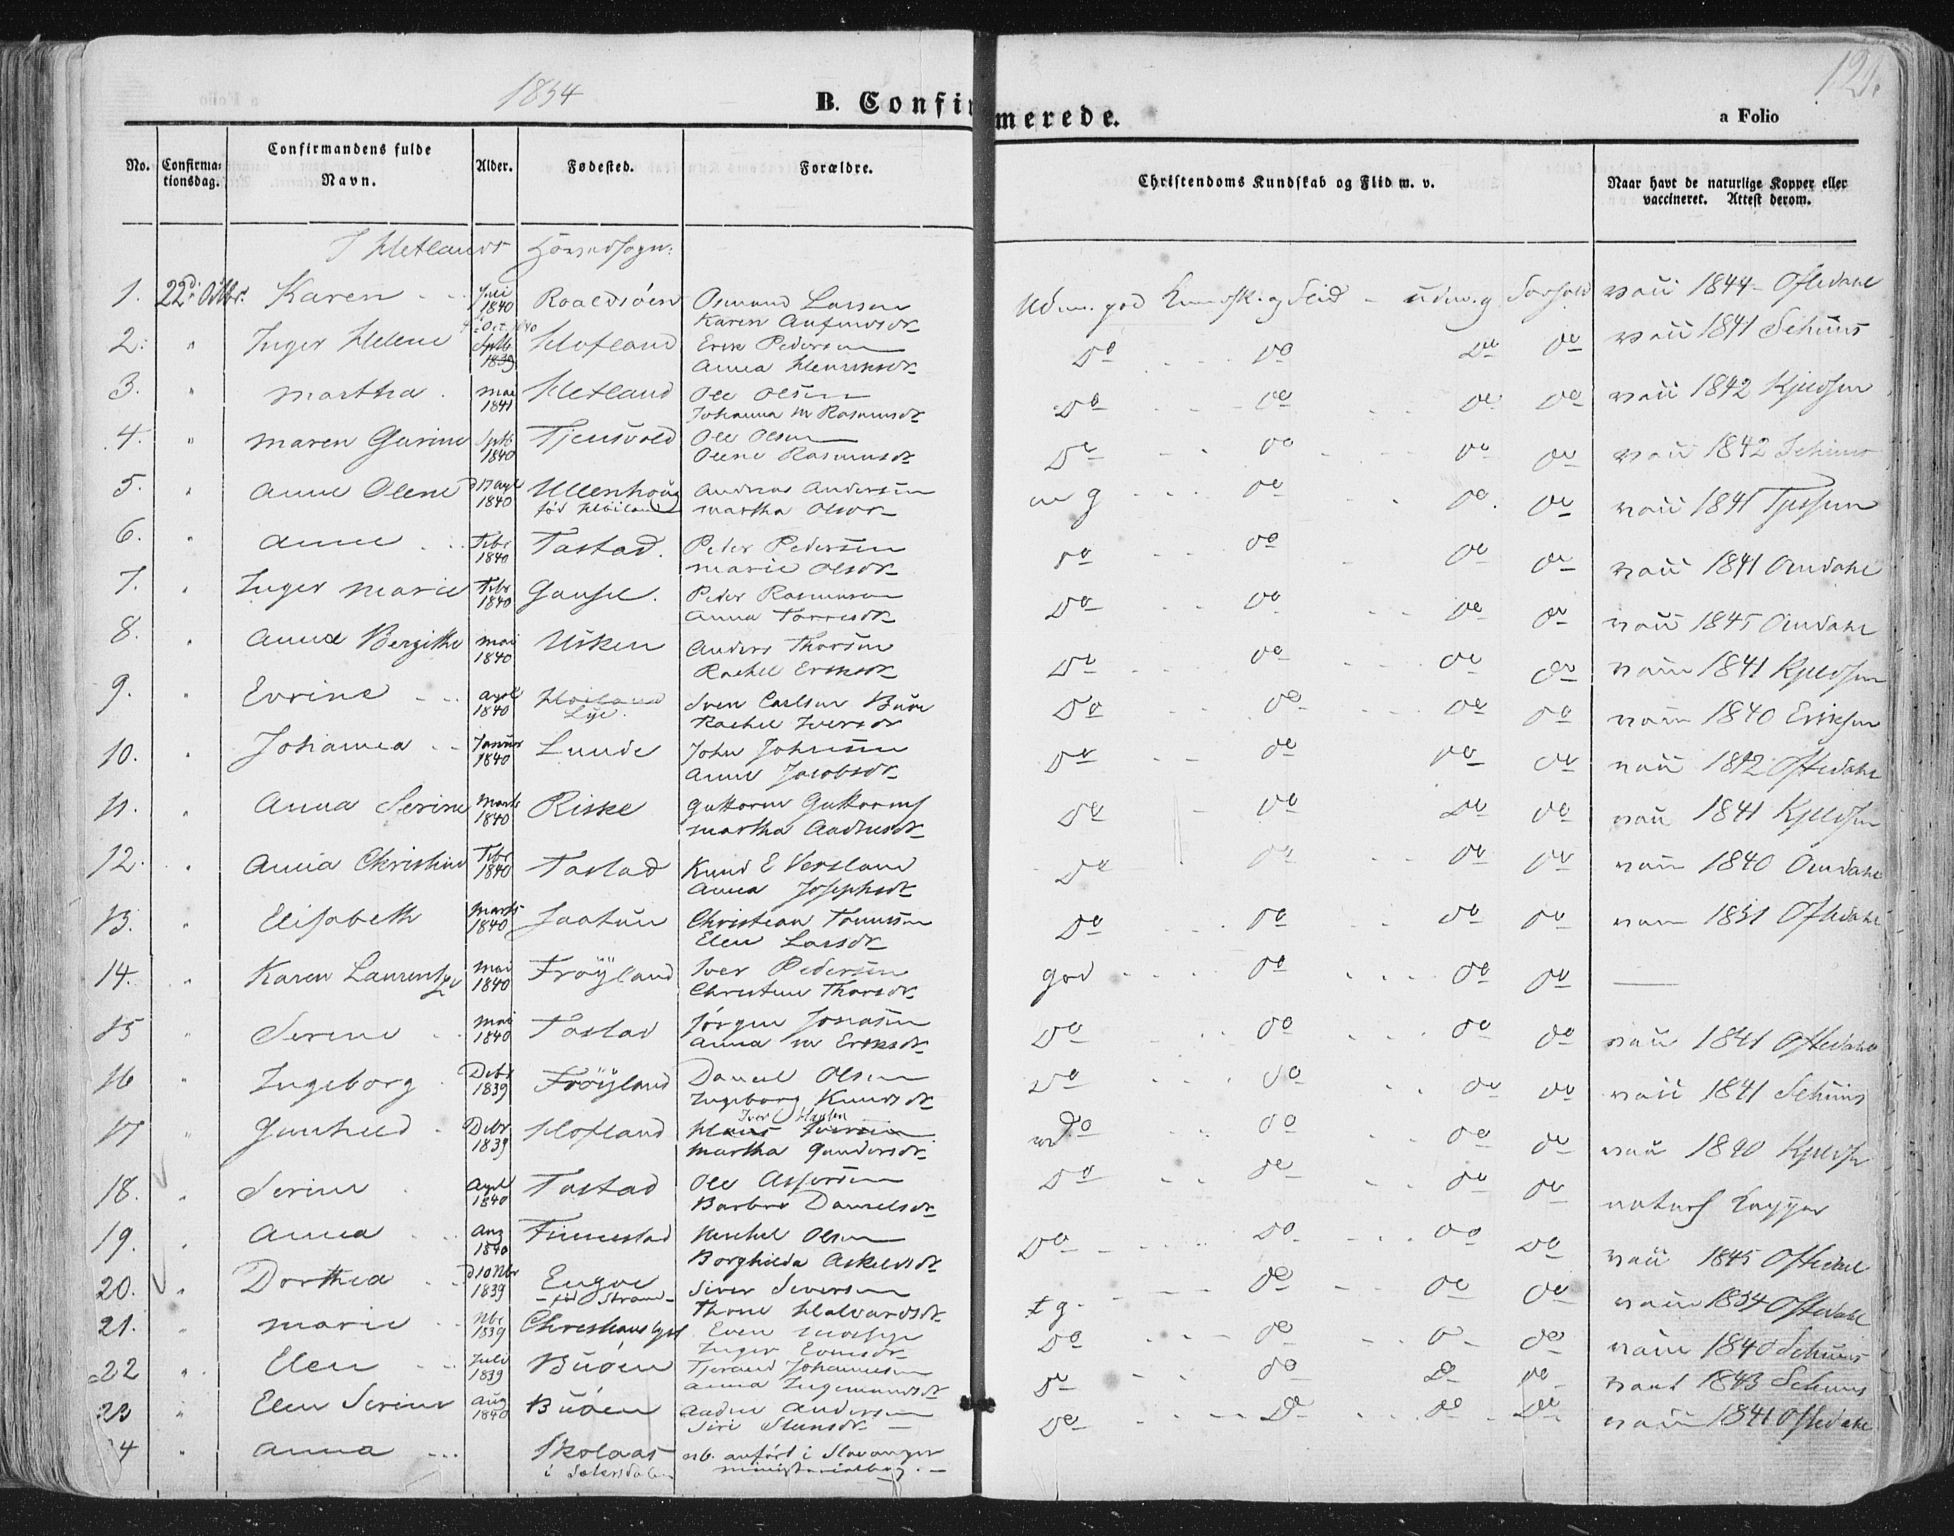 1854
B. Confirmerede.
121.
a Folio
No.
Confirmationsdag.
Confirmandens fulde Navn.
Alder.
Fødested.
Forældre.
Christendoms Kundskab og Flid m. v.
Naar havt de naturlige Kopper eller vaccineret. Attest derom.
I Hetlands Hovedsogn:
1. 22d Octbr. Karen Juni 1840 Roaldsøen Osmund Larsen Karen Aufindsdr Udm. god Kundsk. og Flid - udm. g. Forhold vacc 1844 Oftedahl
2. " Inger Helene Oct. 1840 Septb 1839 Hofland Erik Pedersen Anna Henriksdr Do Do Do Do vacc 1841 Schiøns
3. " Martha Mai 1841 Hetland Ole Olsen Johanna M Rasmusdr Do Do Do Do vacc 1842 Kjeldsen
4. " Maren Gurine Septb 1840 Tjensvold Ole Olsen Olene Rasmusdr Do Do Do Do vacc 1842
5. " Anne Olene April 1840 Ullenhoug Andreas Andersen Martha Olsdr m g Do Do Do vacc 1841
6. " Anne Febr 1840 Tastad. Peder Pedersen Marie Olsdr Do Do Do Do vacc 1841 Omdahl
7. " Inger Marie Febr 1840 Gausel. Peder Rasmussen Anna Torresdr Do Do Do Do vacc 1845 Omdahl
8. " Anna Bergithe Mai 1840 Usken Anders Thorsen Rachel Eriksdr Do Do Do Do vacc 1841 Kjeldsen
9. " Evrine April 1840 Høiland Lye. Sven Carlsen Bue Rachel Iversdr Do Do Do Do vacc 1840 Eriksen
10. " Johanna Januar 1840 Lunde John Johnsen Anne Jacobsdr Do Do Do Do vacc 1842 Oftedahl
11. " Anna Serine Marts 1840 Riske Guttorm Guttorms Martha Aadnesdr Do Do Do Do vacc 1841 Kjeldsen
12. " Anna Christine Febr 1840 Tastad Knud E Versland Anna Josephsdr Do Do Do Do vacc 1840 Omdahl
13. " Elisabeth Marts 1840 Jaatun Christian Tønnesen Elen Larsdr Do Do Do Do vacc 1851 Oftedahl
14. " Karen Laurentze Mai 1840 Frøyland Iver Pedersen Christine Thorsdr god Do Do Do —
15 " Serine Mai 1840 Tastad Jørgen Jonassen Anna M Eriksdr Do Do Do Do vacc 1841 Oftedahl
16 " Ingeborg Debr 1839 Frøyland Daniel Olsen Ingeborg Knudsdr Do Do Do Do vacc 1841 Schiøns
17 " Gunhild Debr 1839 Hofland Iver Hansen Hans Iversen Martha Gundersdr Do Do Do Do vacc 1840 Kjeldsen
18. " Serine April 1840 Tastad Ole Asserssen Barbro Danielsdr Do Do Do Do naturl Kopper
19. " Anna Aug 1840 Finnestad Michel Olsen Borghilda Askeldsdr Do Do Do Do vacc 1845 Oftedahl
20. " Dorthea d 10 Nbr 1839 Engøe - fød Strand - Siver Siversen Thrine Halvardsdr t g. Do Do Do vacc 1854 Oftedahl
21. " Marie Nbr 1839 Christianslyst Even Inger Evensdr Do Do Do Do vacc 1840 Schiøns
22 " Elen Juli 1839 Buøen Tjerand Johannesen Anna Ingemundsdr Do Do Do Do vacc 1843 Schiøns
23 " Elen Serine Aug 1840 Buøen Aadne Andersen Siri Stensdr Do Do Do Do vacc 1841 Oftedahl
4 " Anna Skolaas i Sætersdalen nb. anført i Stavanger ministerialbog. -